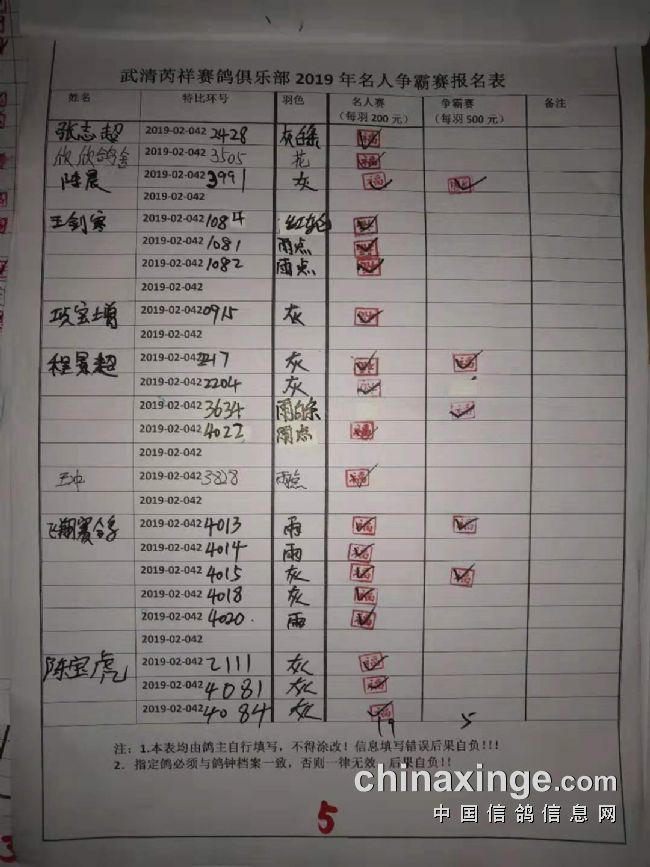 武清芮祥赛鸽俱乐部 2019 年名人争霸赛报名表
姓名 特比环号 羽色 名人赛 (每羽 200 元) 争霸赛 (每羽 500 元) 备注
张志超 2019-02-042 2428 灰白条
欣欣鸽舍 2019-02-042 3505 花
陈晨 2019-02-042 3991 灰
2019-02-042
王剑 2019-02-042 1084 红轮
2019-02-042 1081 雨点
2019-02-042 1082 雨点
2019-02-042
项宝增 2019-02-042 0915 灰
2019-02-042
程景超 2019-02-042 灰
2019-02-042 2204 灰
2019-02-042 3634 雨白条
2019-02-042 4022 雨点
2019-02-042
2019-02-042 3828 雨点
2019-02-042
飞翔赛鸽 2019-02-042 4013 雨
2019-02-042 4014 雨
2019-02-042 4015 灰
2019-02-042 4018 灰
2019-02-042 4020. 雨
2019-02-042
陈宝虎 2019-02-042 2111 灰
2019-02-042 4081 灰
2019-02-042 4084 灰
19 5
注：1.本表均由鸽主自行填写，不得涂改！信息填写错误后果自负!!!
2．指定鸽必须与鸽钟档案一致，否则一律无效，后果自负!!!
chinaxinge.com
中国信鸽信息网
5